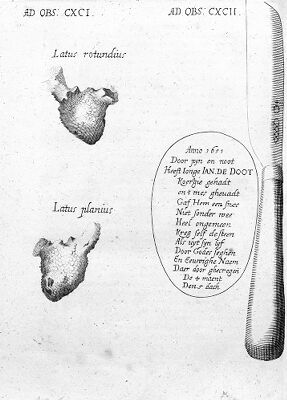 AD OBS. CXCI.
AD OBS. CXCII.
Latus rotundius
Latus planius
Anno 1651
Door pyn en noot
Heeft Ionge IAN. DE DOOT
Koersie gehadt
en t mes ghevadt
Gaf Hem een snee
Niet sonder wee
Heel ongemeen
Kreg self desteen
Als uyt syn lyf
Door Godes seghen
En Eeuwighe Naem
Daer door ghecregen
De 4 maent
Den 5 dach